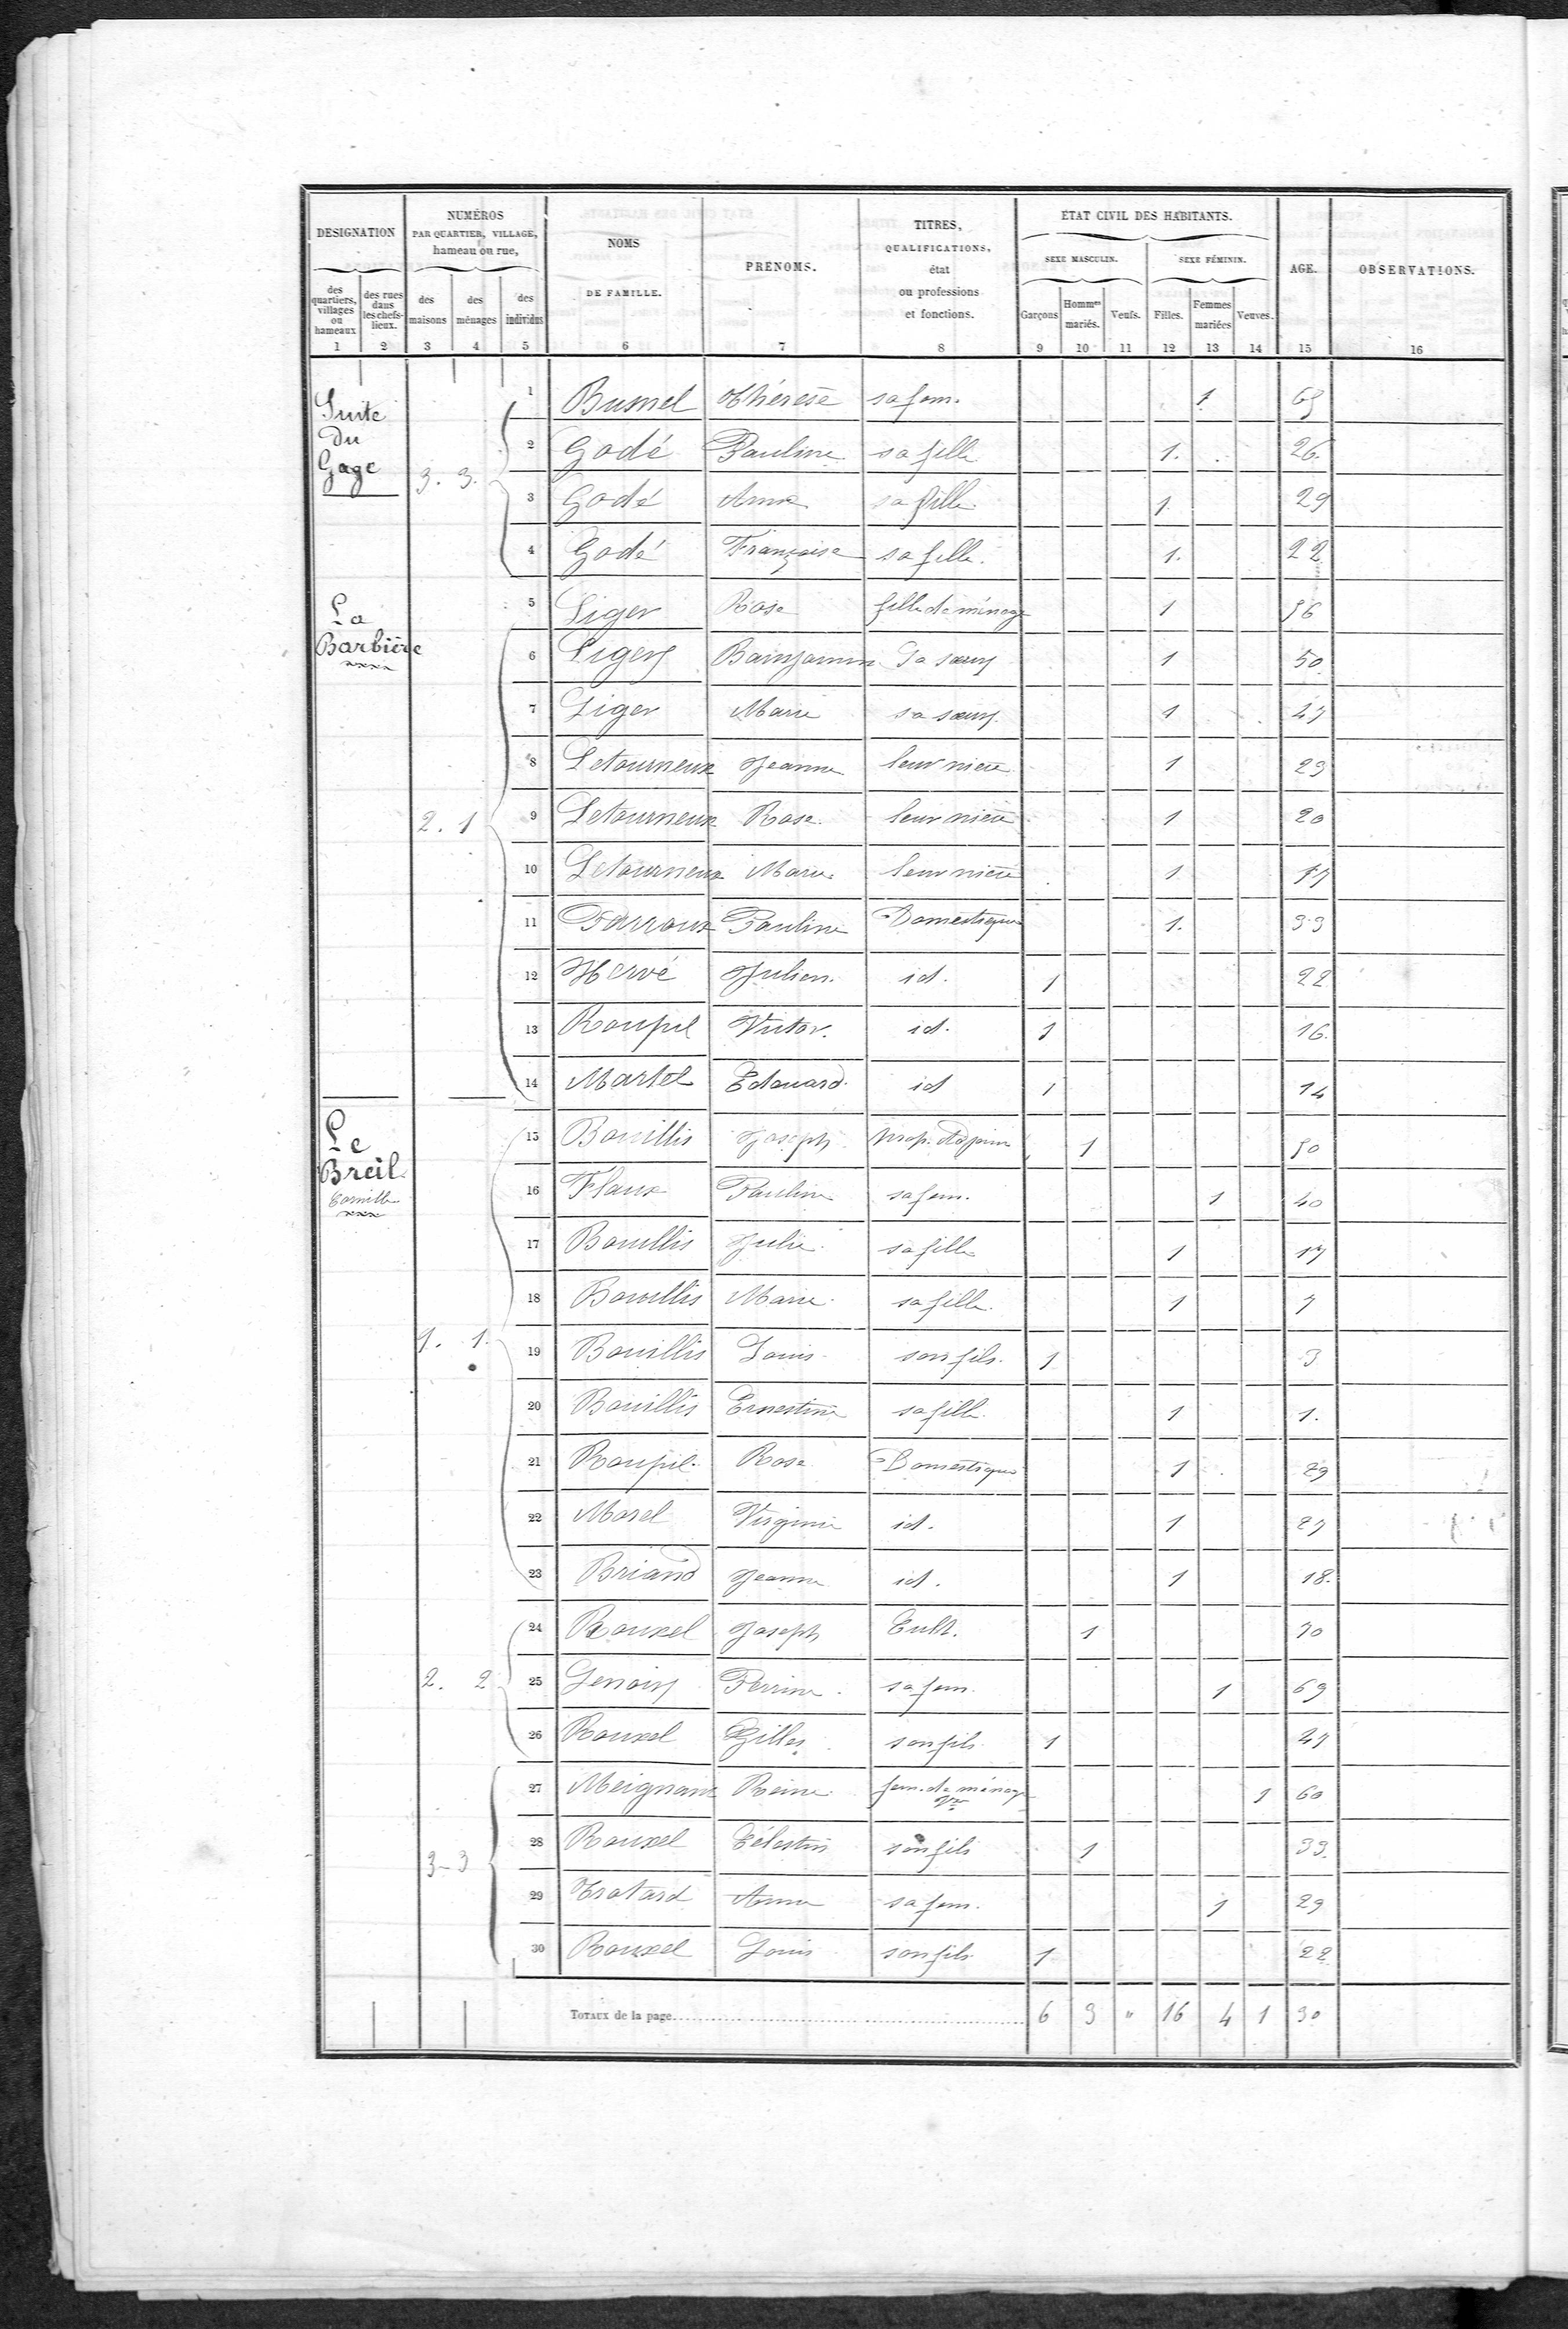 DESIGNATION
NUMÉROS PAR QUARTIER, VILLAGE, hameau ou rue,
NOMS DE FAMILLE.
PRÉNOMS.
TITRES, QUALIFICATIONS, état ou professions et fonctions.
ÉTAT CIVIL DES HABITANTS.
SEXE MASCULIN. SEXE FÉMININ.
AGE.
OBSERVATIONS.
des quartiers, villages ou hameaux
des rues dans les chefs-lieux.
des maisons
des ménages
des individus
Garçons
Hommes mariés.
Veufs.
Filles.
Femmes mariées
Veuves.
1 2 3 4 5 6 7 8 9 10 11 12 13 14 15 16
Suite
du
Gage 3. 3.
1 Busnel Thérèse sa fem. 1
2 Godé Pauline sa fille 1. 26.
3 Godé Anna sa fille. 1 29
4 Godé Françoise sa fille. 1. 22
La
Barbière 2. 1
5 Liger Rose fille de ménage 1 56
6 Liger Sa sœur 1 50
7 Liger Marie sa sœur 1 47
8 Letourneux Jeanne leur nièce 1 23
9 Letourneux Rose. leur nièce 1 20
10 Letourneux Marie leur nièce 1 17
11 Pauline Domestique 1. 33
12 Hervé Julien. id. 1 22
13 Roupil Victor. id. 1 16.
14 Martel Edouard. id 1 14
Le
Breil
Cornillé 1. 1.
15 Bouillis Joseph prop. Adjoint 1 50
16 Flaux Pauline sa fem. 1 40
17 Bouillis Julie sa fille 1 17
18 Bouillis Marie sa fille. 1 7
19 Bouillis Louis son fils. 1 3
20 Bouillis Ernestine sa fille. 1 1.
21 Roupil Rose Domestique 1 29
22 Morel Virginie id. 1 27
23 Briand Jeanne id. 1 18.
2. 2
24 Rouxel Joseph Cult. 1 70
25 Perrine sa fem. 1 69
26 Rouxel Gilles son fils 1 27
3-3
27 Meignan Reine fem. de ménage Vve 1 60
28 Rouxel Célestin son fils 1 33.
29 Tratard Anna sa fem. 1 29
30 Rouxel Louis son fils 1 22
TOTAUX de la page 6 3 " 16 4 1 30